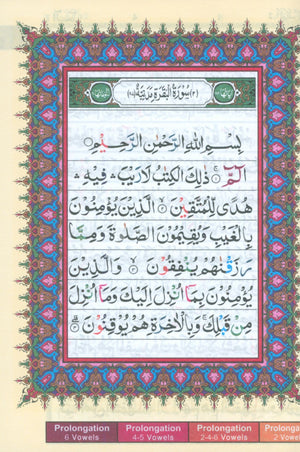 (٢) سُوْرَةُ الْبَقَرَةِ مَدَنِيَّةٌ
بِسْمِ اللهِ الرَّحْمٰنِ الرَّحِيْمِ
الٓمّٓ ذٰلِكَ الْكِتٰبُ لَا رَيْبَ فِيْهِ
هُدًى لِّلْمُتَّقِيْنَ الَّذِيْنَ يُؤْمِنُوْنَ
بِالْغَيْبِ وَيُقِيْمُوْنَ الصَّلٰوةَ وَمِمَّا
رَزَقْنٰهُمْ يُنْفِقُوْنَ وَالَّذِيْنَ
يُؤْمِنُوْنَ بِمَآ اُنْزِلَ اِلَيْكَ وَمَآ اُنْزِلَ
مِنْ قَبْلِكَ وَبِالْاٰخِرَةِ هُمْ يُوْقِنُوْنَ
Prolongation Prolongation Prolongation Prolonga
6 Vowels 4-5 Vowels 2-4-6 Vowels 2 Vowel